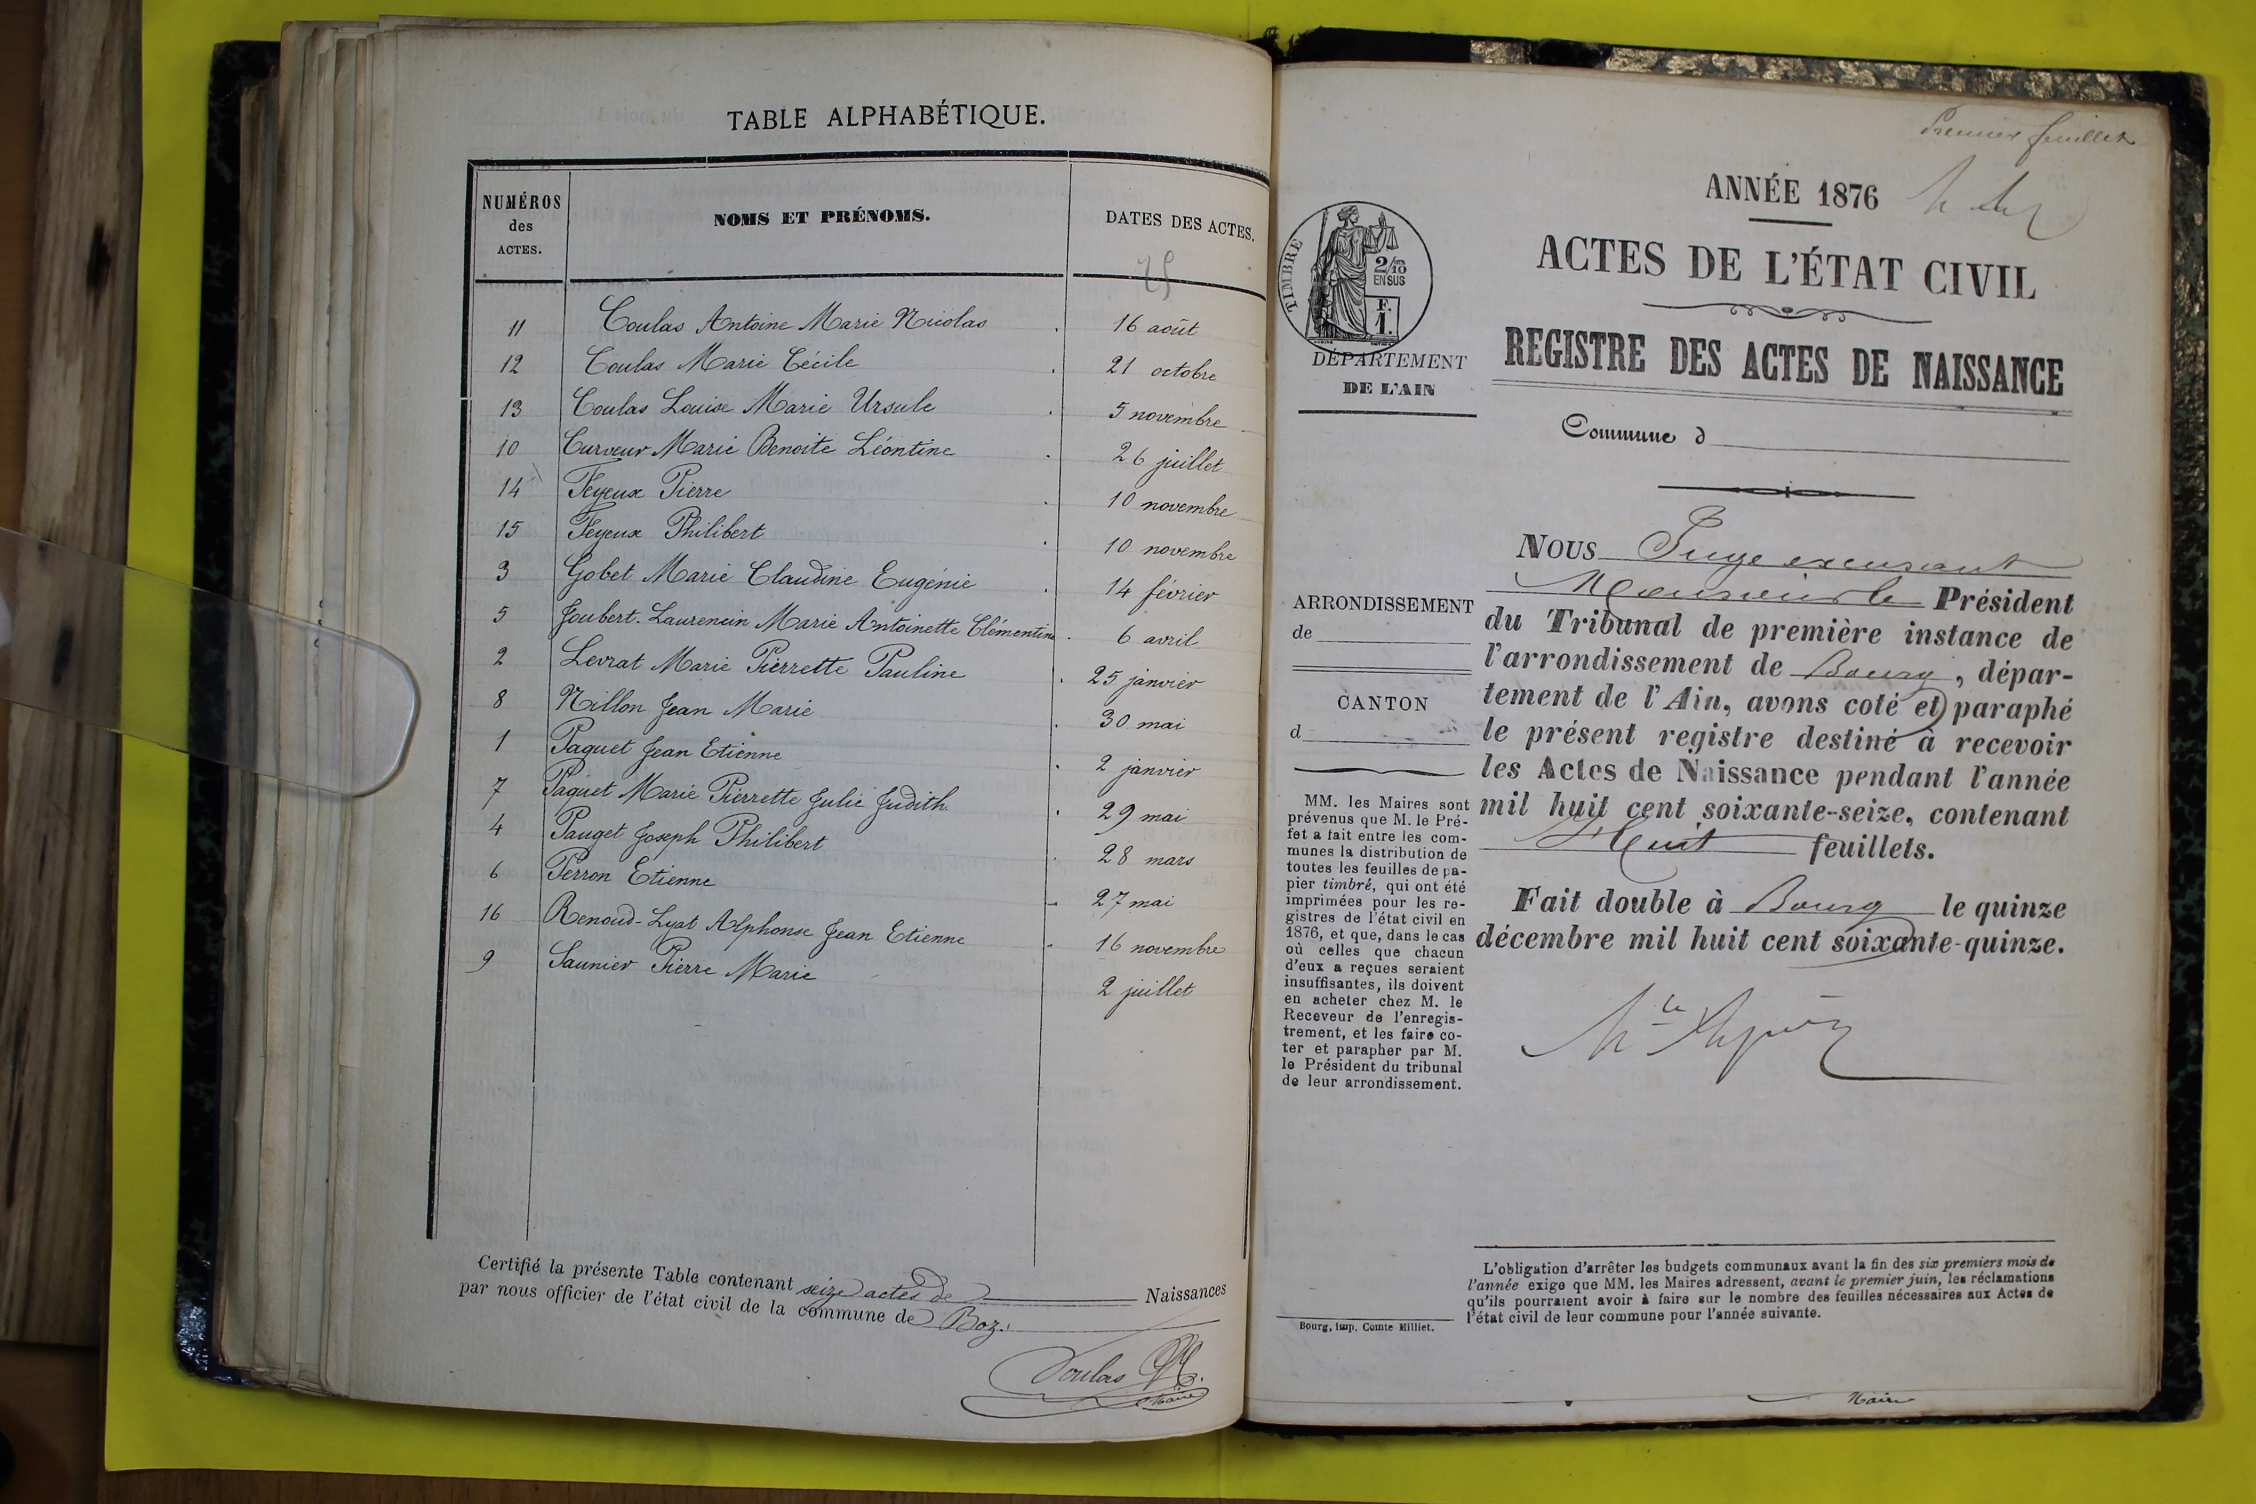 TABLE ALPHABÉTIQUE.
NUMÉROS des ACTES.
NOMS ET PRÉNOMS.
DATES DES ACTES.
75
11 Coulas Antoine Marie Nicolas 16 août
12 Coulas Marie Cécile 21 octobre
13 Coulas Louise Marie Ursule 5 novembre
10 Curveur Marie Benoite Léontine 26 juillet
14 Feyeux Pierre 10 novembre
15 Feyeux Philibert 10 novembre
3 Gobet Marie Claudine Eugénie 14 février
5 Joubert-Laurencin Marie Antoinette Clémentine 6 avril
2 Levrat Marie Pierrette Pauline 25 janvier
8 Nillon Jean Marie 30 mai
1 Paquet Jean Etienne 2 janvier
7 Paquet Marie Pierrette Julie Judith 29 mai
4 Pauget Joseph Philibert 28 mars
6 Perron Etienne 27 mai
16 Renoud-Lyat Alphonse Jean Etienne 16 novembre
9 Saunier Pierre Marie 2 juillet
Certifié la présente Table contenant seize actes de Naissances
par nous officier de l'état civil de la commune de Boz.
Coulas
Maire
Premier feuillet
ANNÉE 1876
ACTES DE L'ÉTAT CIVIL
REGISTRE DES ACTES DE NAISSANCE
Commune d
TIMBRE
2/10 EN SUS
F.
1.
DÉPARTEMENT
DE L'AIN
ARRONDISSEMENT
de
CANTON
d
MM. les Maires sont
prévenus que M. le Pré-
fet a fait entre les com-
munes la distribution de
toutes les feuilles de pa-
pier timbré, qui ont été
imprimées pour les re-
gistres de l'état civil en
1876, et que, dans le cas
où celles que chacun
d'eux a reçues seraient
insuffisantes, ils doivent
en acheter chez M. le
Receveur de l'enregis-
trement, et les faire co-
ter et parapher par M.
le Président du tribunal
de leur arrondissement.
Bourg, imp. Comte Milliet.
NOUS Juge excusant
Monsieur le Président
du Tribunal de première instance de
l'arrondissement de Bourg, dépar-
tement de l'Ain, avons coté et paraphé
le présent registre destiné à recevoir
les Actes de Naissance pendant l'année
mil huit cent soixante-seize, contenant
Huit feuillets.
Fait double à Bourg le quinze
décembre mil huit cent soixante-quinze.
L'obligation d'arrêter les budgets communaux avant la fin des six premiers mois de
l'année exige que MM. les Maires adressent, avant le premier juin, les réclamations
qu'ils pourraient avoir à faire sur le nombre des feuilles nécessaires aux Actes de
l'état civil de leur commune pour l'année suivante.
Maire